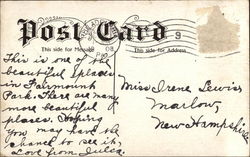 Post Card
This side for Message
This side for Address
08
9
This is one of the
beautiful places
in Fairmount
Park. There are many
more beautiful
places. Hoping
you may have the
chance to see it,
Love from Julia.
Miss Irene Lewis
Marlow,
New Hampshire